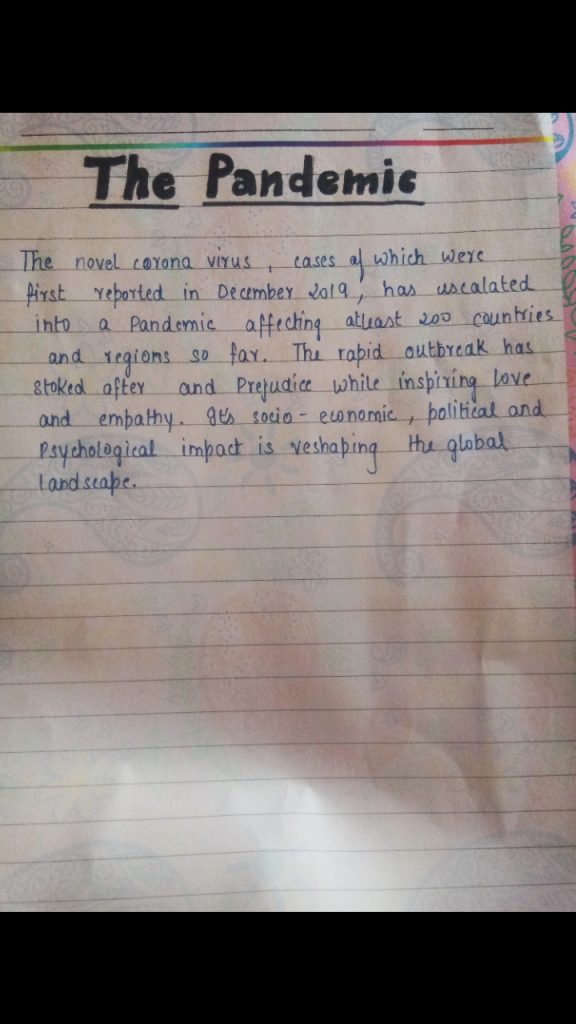 The Pandemic
The novel corona virus , cases of which were
first reported in December 2019, has escalated
into a Pandemic affecting atleast 200 countries
and regions so far. The rapid outbreak has
stoked after and Prejudice while inspiring love
and empathy. Its socio - economic , political and
Psychological impact is reshaping the global
landscape.